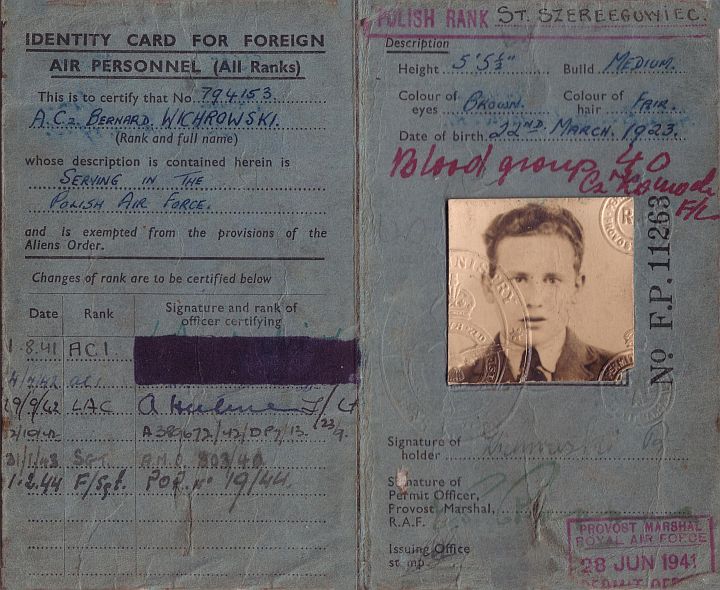 IDENTITY CARD FOR FOREIGN
AIR PERSONNEL (All Ranks)
This is to certify that No. 794153
A.C2 BERNARD WICHROWSKI.
(Rank and full name)
whose description is contained herein is
SERVING IN THE
POLISH AIR FORCE.
and is exempted from the provisions of the
Aliens Order.
Changes of rank are to be certified below
Date Rank Signature and rank of
officer certifying
1.8.41 AC1
29/9/42 LAC
2/10/42 A389672/42/DP7/13
31/1/43 SGT. A.M.O. 803/42
1.2.44 F/Sgt. POR. No 19/44.
POLISH RANK ST. SZEREEGOWIEC.
Description
Height 5'5½" Build MEDIUM.
Colour of
eyes BROWN. Colour of
hair FAIR.
Date of birth 22ND MARCH. 1923.
Blood group 40
F/L
No F.P. 11263
Signature of
holder
Signature of
Permit Officer,
Provost Marshal,
R.A.F.
Issuing Office
PROVOST MARSHAL
ROYAL AIR FORCE
28 JUN 1941